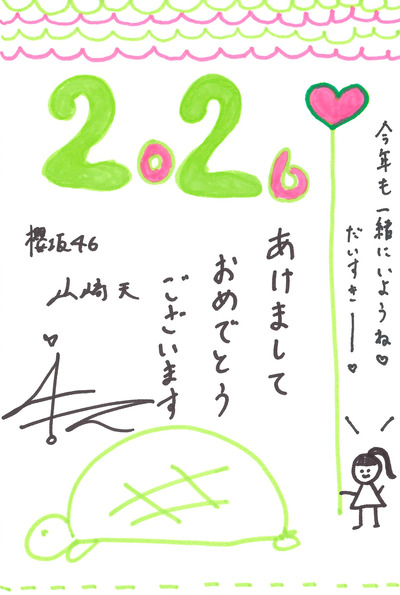 2026
今年も一緒にいようね♡
だいすきー♡
あけまして
おめでとう
ございます
櫻坂46
山﨑天